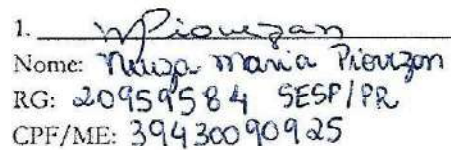 1. nPiovezan
Nome: Neuza Maria Piovezon
RG: 20959584 SESP/PR
CPF/ME: 39430090925